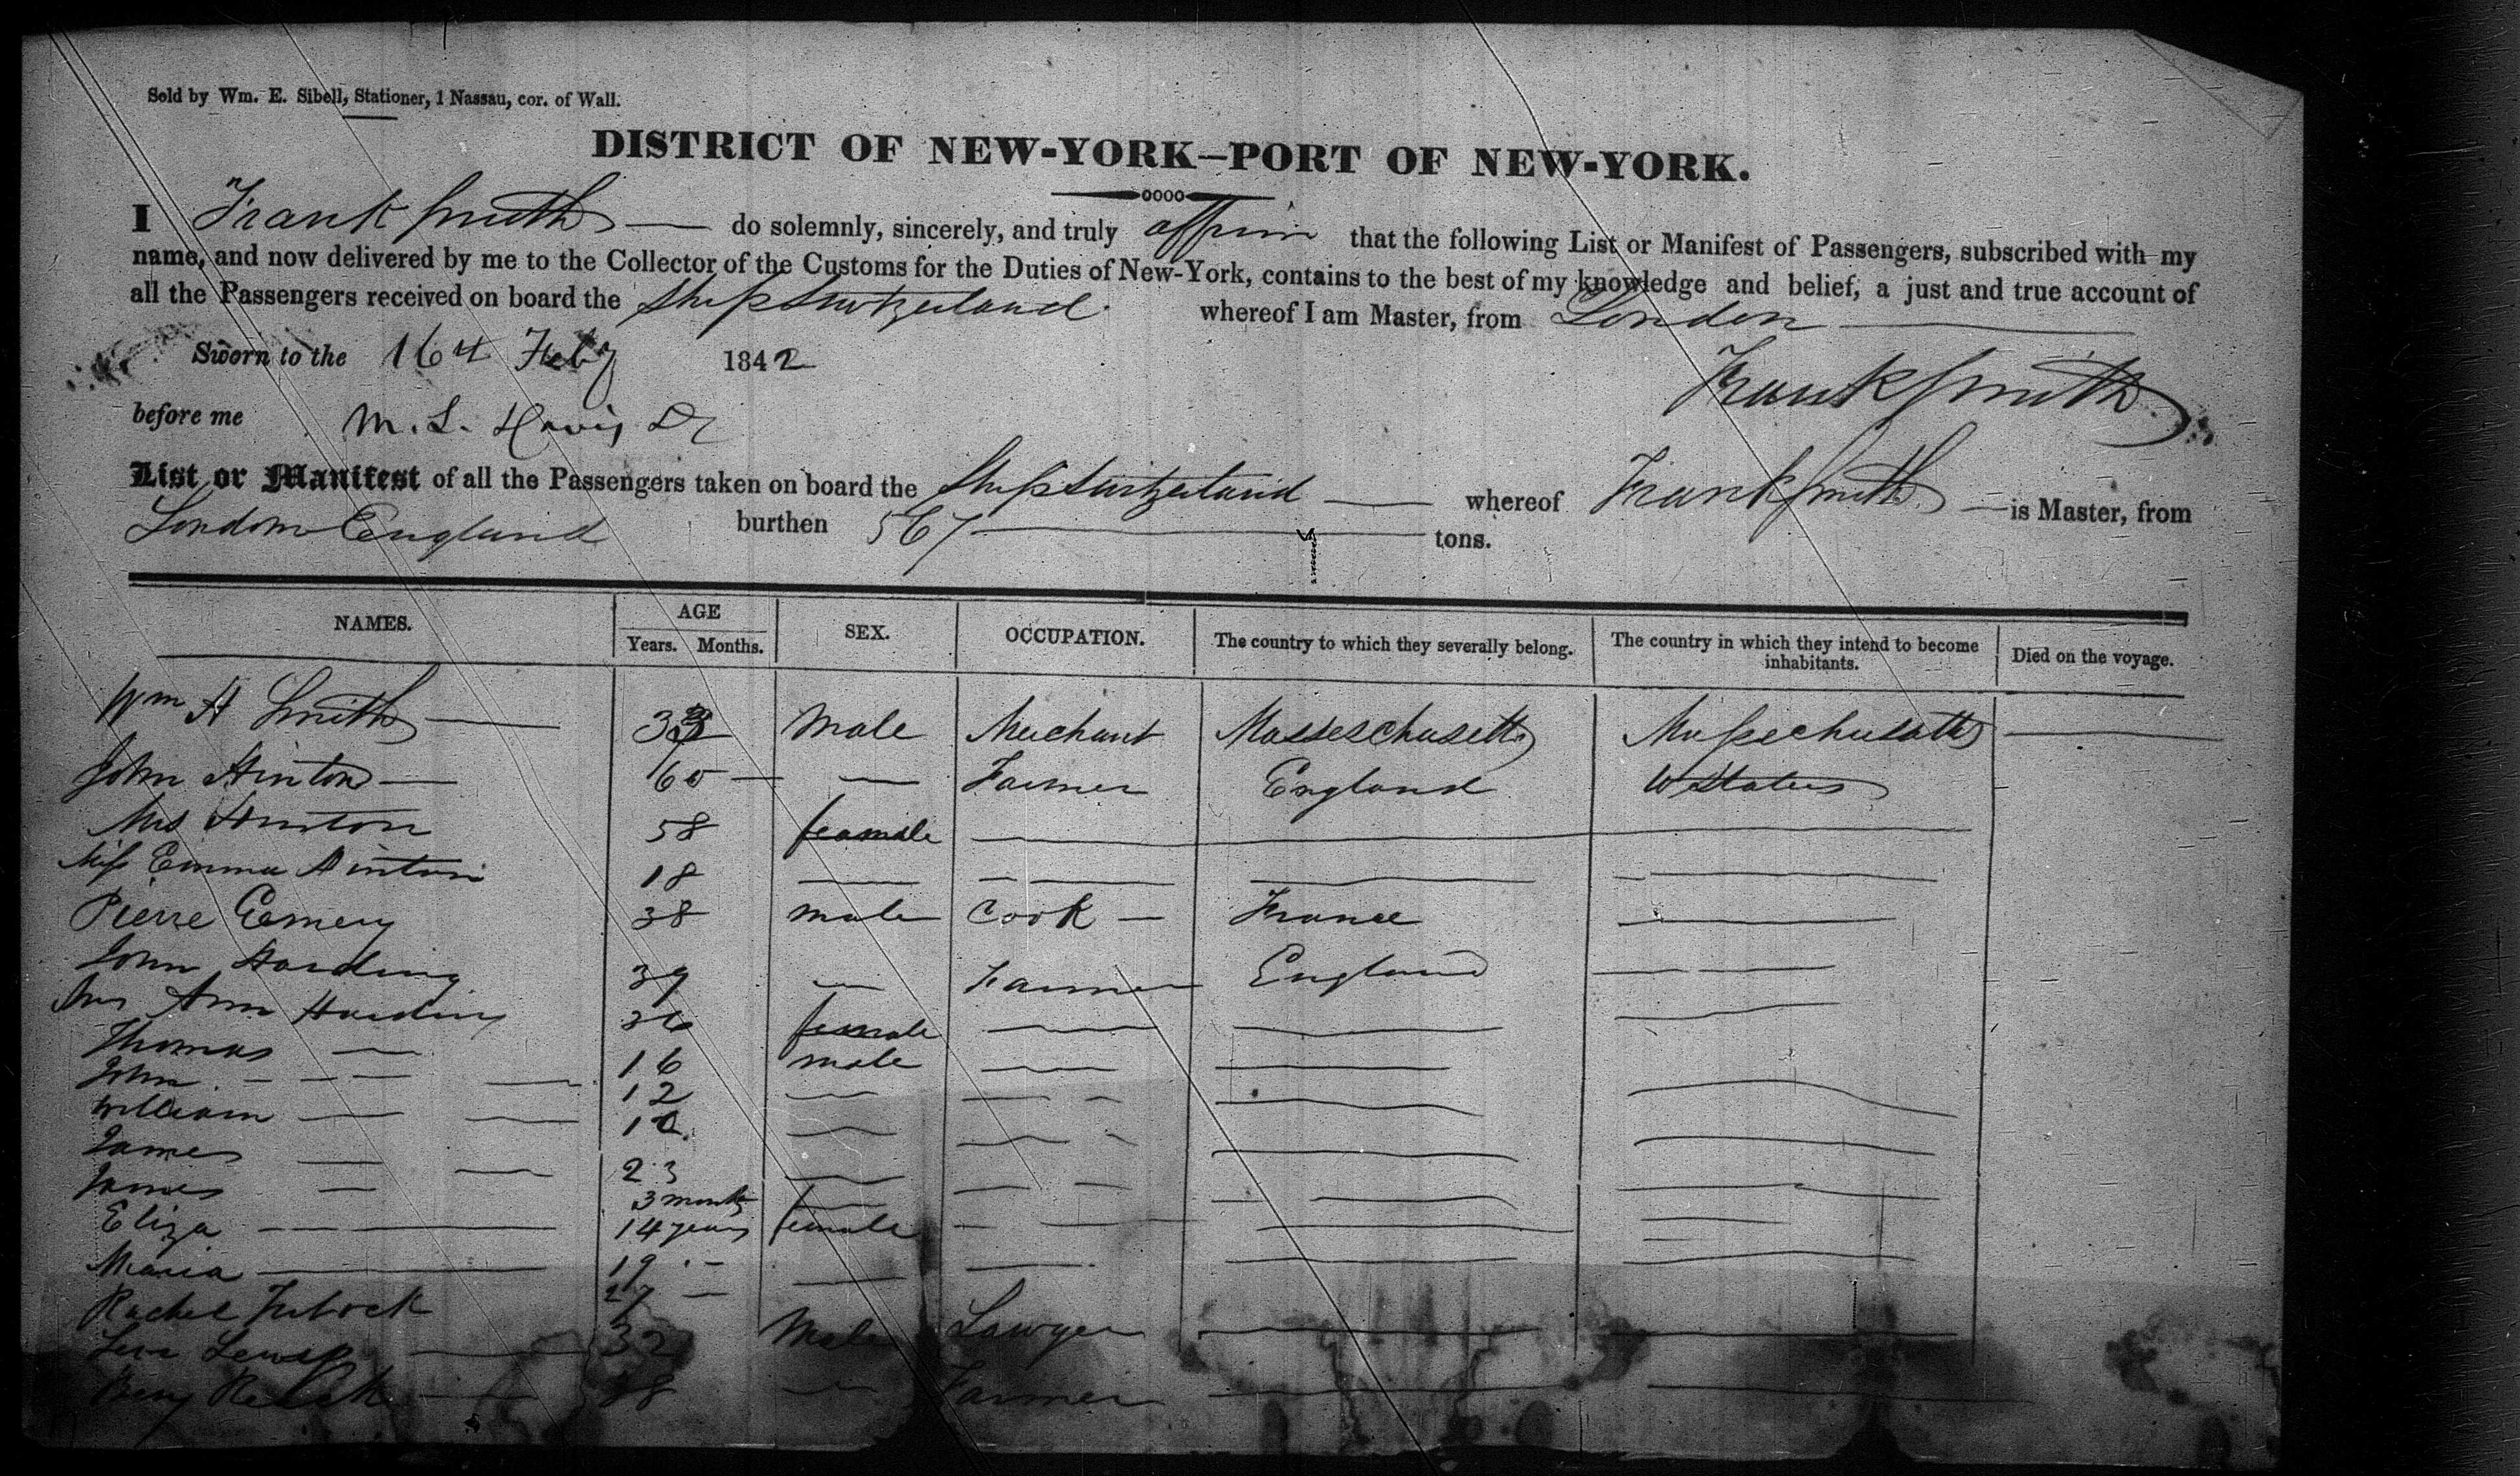 Sold by Wm. E. Sibell, Stationer, 1 Nassau, cor. of Wall.
DISTRICT OF NEW-YORK—PORT OF NEW-YORK.
I Frank Smith — do solemnly, sincerely, and truly affirm that the following List or Manifest of Passengers, subscribed with my
name, and now delivered by me to the Collector of the Customs for the Duties of New-York, contains to the best of my knowledge and belief, a just and true account of
all the Passengers received on board the Ship Switzerland whereof I am Master, from London
Sworn to the 16th Feby 1842
Frank Smith
before me M. L. Davis
List or Manifest of all the Passengers taken on board the Ship Switzerland — whereof Frank Smith — is Master, from
London England burthen 567 tons.
NAMES. AGE Years. Months. SEX. OCCUPATION. The country to which they severally belong. The country in which they intend to become inhabitants. Died on the voyage.
Wm H Smith — male Merchant Masseschusetts Massechusatts —
John Hinton — 60 — — Farmer England UStates
Mrs Hinton 58 feamale —
Miss Emma Hinton 18 — — — —
Pierre Emery 38 male Cook — France —
John Harding 39 — Farmer England —
Mrs Ann Harding 36 female — — —
Thomas — 16 male — —
John — 12 — — — —
William — 10 — — — —
James — 23 — — — —
James — 3 months — — —
Eliza — 14 years female — — —
Maria — 19 — — — —
Rachel 27 —
Levi 32 Male Lawyer — —
Benj 38 — Farmer — —